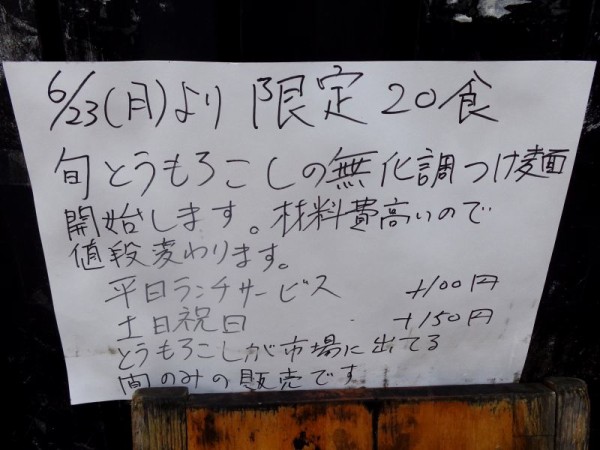 6/23(月)より 限定 20食
旬とうもろこしの無化調つけ麺
開始します。材料費高いので
値段変わります。
平日ランチサービス +100円
土日祝日 +150円
とうもろこしが市場に出てる
間のみの販売です